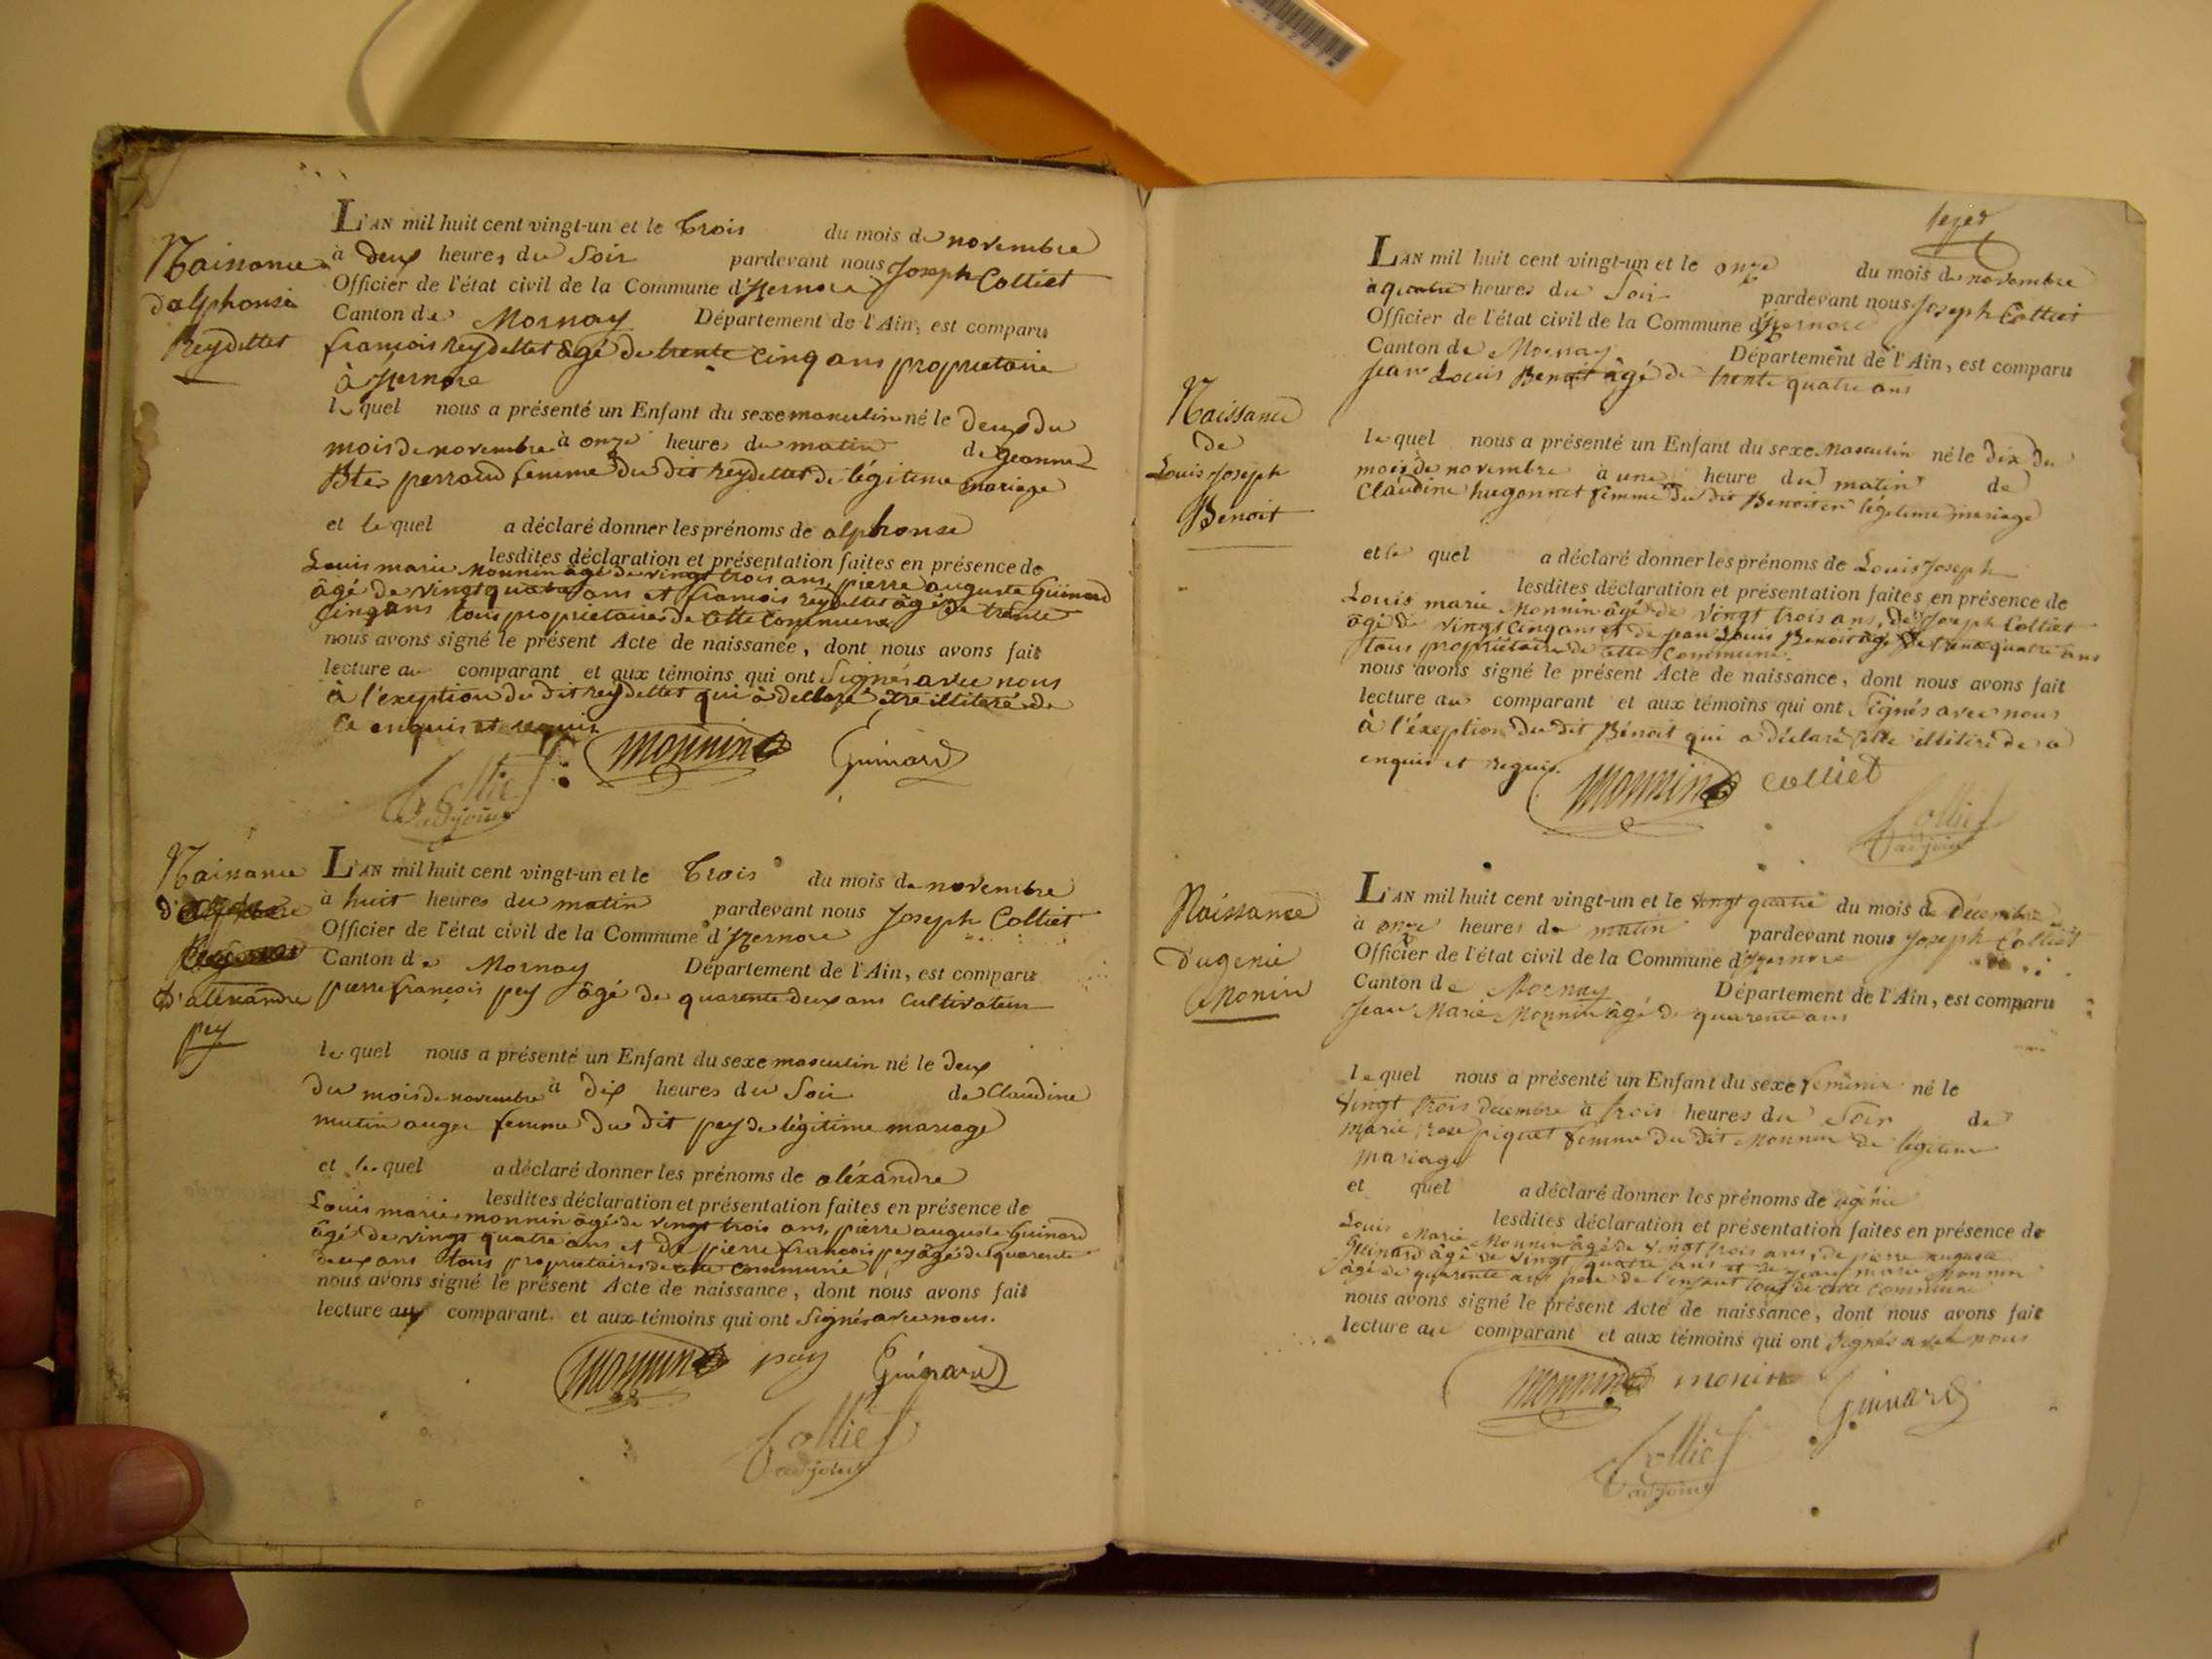 Naissance
d'alphonse
Reydellet
L'AN mil huit cent vingt-un et le trois du mois de novembre
à deux heures du soir pardevant nous Joseph Colliet
Officier de l'état civil de la Commune d'Izernore
Canton de Mornay Département de l'Ain, est comparu
françois reydellet âgé de trente cinq ans propriétaire
à Izernore
lequel nous a présenté un Enfant du sexe masculin né le deux du
mois de novembre à onze heures du matin de Jeanne
Bte perraud femme du dit reydellet de légitime mariage
et lequel a déclaré donner les prénoms de alphonse
lesdites déclaration et présentation faites en présence de
Louis marie monnin âgé de vingt trois ans, pierre auguste Guinard
âgé de vingt quatre ans et françois reydellet âgé de trente
cinq ans tous propriétaires de cette commune
nous avons signé le présent Acte de naissance, dont nous avons fait
lecture au comparant et aux témoins qui ont signés avec nous
à l'exeption du dit reydellet qui à déllaré être illiteré de
ce enquis et requis
monnin Guinard
Colliet
adjoint
Naissance
d'alexandre
pey
L'AN mil huit cent vingt-un et le trois du mois de novembre
à huit heures du matin pardevant nous Joseph Colliet
Officier de l'état civil de la Commune d'Izernore
Canton de Mornay Département de l'Ain, est comparu
pierre françois pey âgé de quarente deux ans cultivateur
lequel nous a présenté un Enfant du sexe masculin né le deux
du mois de novembre à dix heures du soir de Claudine
mutin auger femme du dit pey de légitime mariage
et lequel a déclaré donner les prénoms de aléxandre
lesdites déclaration et présentation faites en présence de
Louis marie monnin âgé de vingt trois ans, pierre auguste Guinard
âgé de vingt quatre ans et de pierre françois pey âgé de quarente
deux ans tous propriétaires de cette commune
nous avons signé le présent Acte de naissance, dont nous avons fait
lecture au comparant et aux témoins qui ont signés avec nous.
monnin pey Guinard
Colliet
adjoint
Naissance
de
Louis Joseph
Benoit
L'AN mil huit cent vingt-un et le onze du mois de novembre
à quatre heures du soir pardevant nous Joseph Colliet
Officier de l'état civil de la Commune d'Izernore
Canton de Mornay Département de l'Ain, est comparu
Jean Louis Benoit âgé de trente quatre ans
lequel nous a présenté un Enfant du sexe Masculin né le dix du
mois de novembre à une heure du matin de
Claudine hugonnet femme du dit Benoit en légitime mariage
et le quel a déclaré donner les prénoms de Louis Joseph
lesdites déclaration et présentation faites en présence de
Louis marie Monnin âgé de vingt trois ans, de Joseph Colliet
âgé de vingt cinq ans et de Jean Louis Benoit âgé de trente quatre ans
tous propriétaire de cette commune.
nous avons signé le présent Acte de naissance, dont nous avons fait
lecture au comparant et aux témoins qui ont signés avec nous
à l'éxeption du dit Bénoit qui a déclaré être illitéré de a
enquis et requis.
monnin colliet
Colliet
adjoint
Naissance
dugenie
Monin
L'AN mil huit cent vingt-un et le vingt quatre du mois de Décembre
à onze heures du matin pardevant nous Joseph Colliet
Officier de l'état civil de la Commune d'Izernore
Canton de Mornay Département de l'Ain, est comparu
Jean Marie Monnin âgé de quarente ans
lequel nous a présenté un Enfant du sexe féminin né le
vingt trois décembre à trois heures du soir de
marie rose piquet femme du dit Monnin de légitime
mariage
et quel a déclaré donner les prénoms de ugénie
lesdites déclaration et présentation faites en présence de
Louis Marie Monnin âgé de vingt trois ans, de pierre auguste
Guinard âgé de vingt quatre ans et de jean marie Monnin
âgé de quarente ans père de l'enfant tous de cette commune
nous avons signé le présent Acte de naissance, dont nous avons fait
lecture au comparant et aux témoins qui ont signés avec nous
monnin monin Guinard
Colliet
adjoint